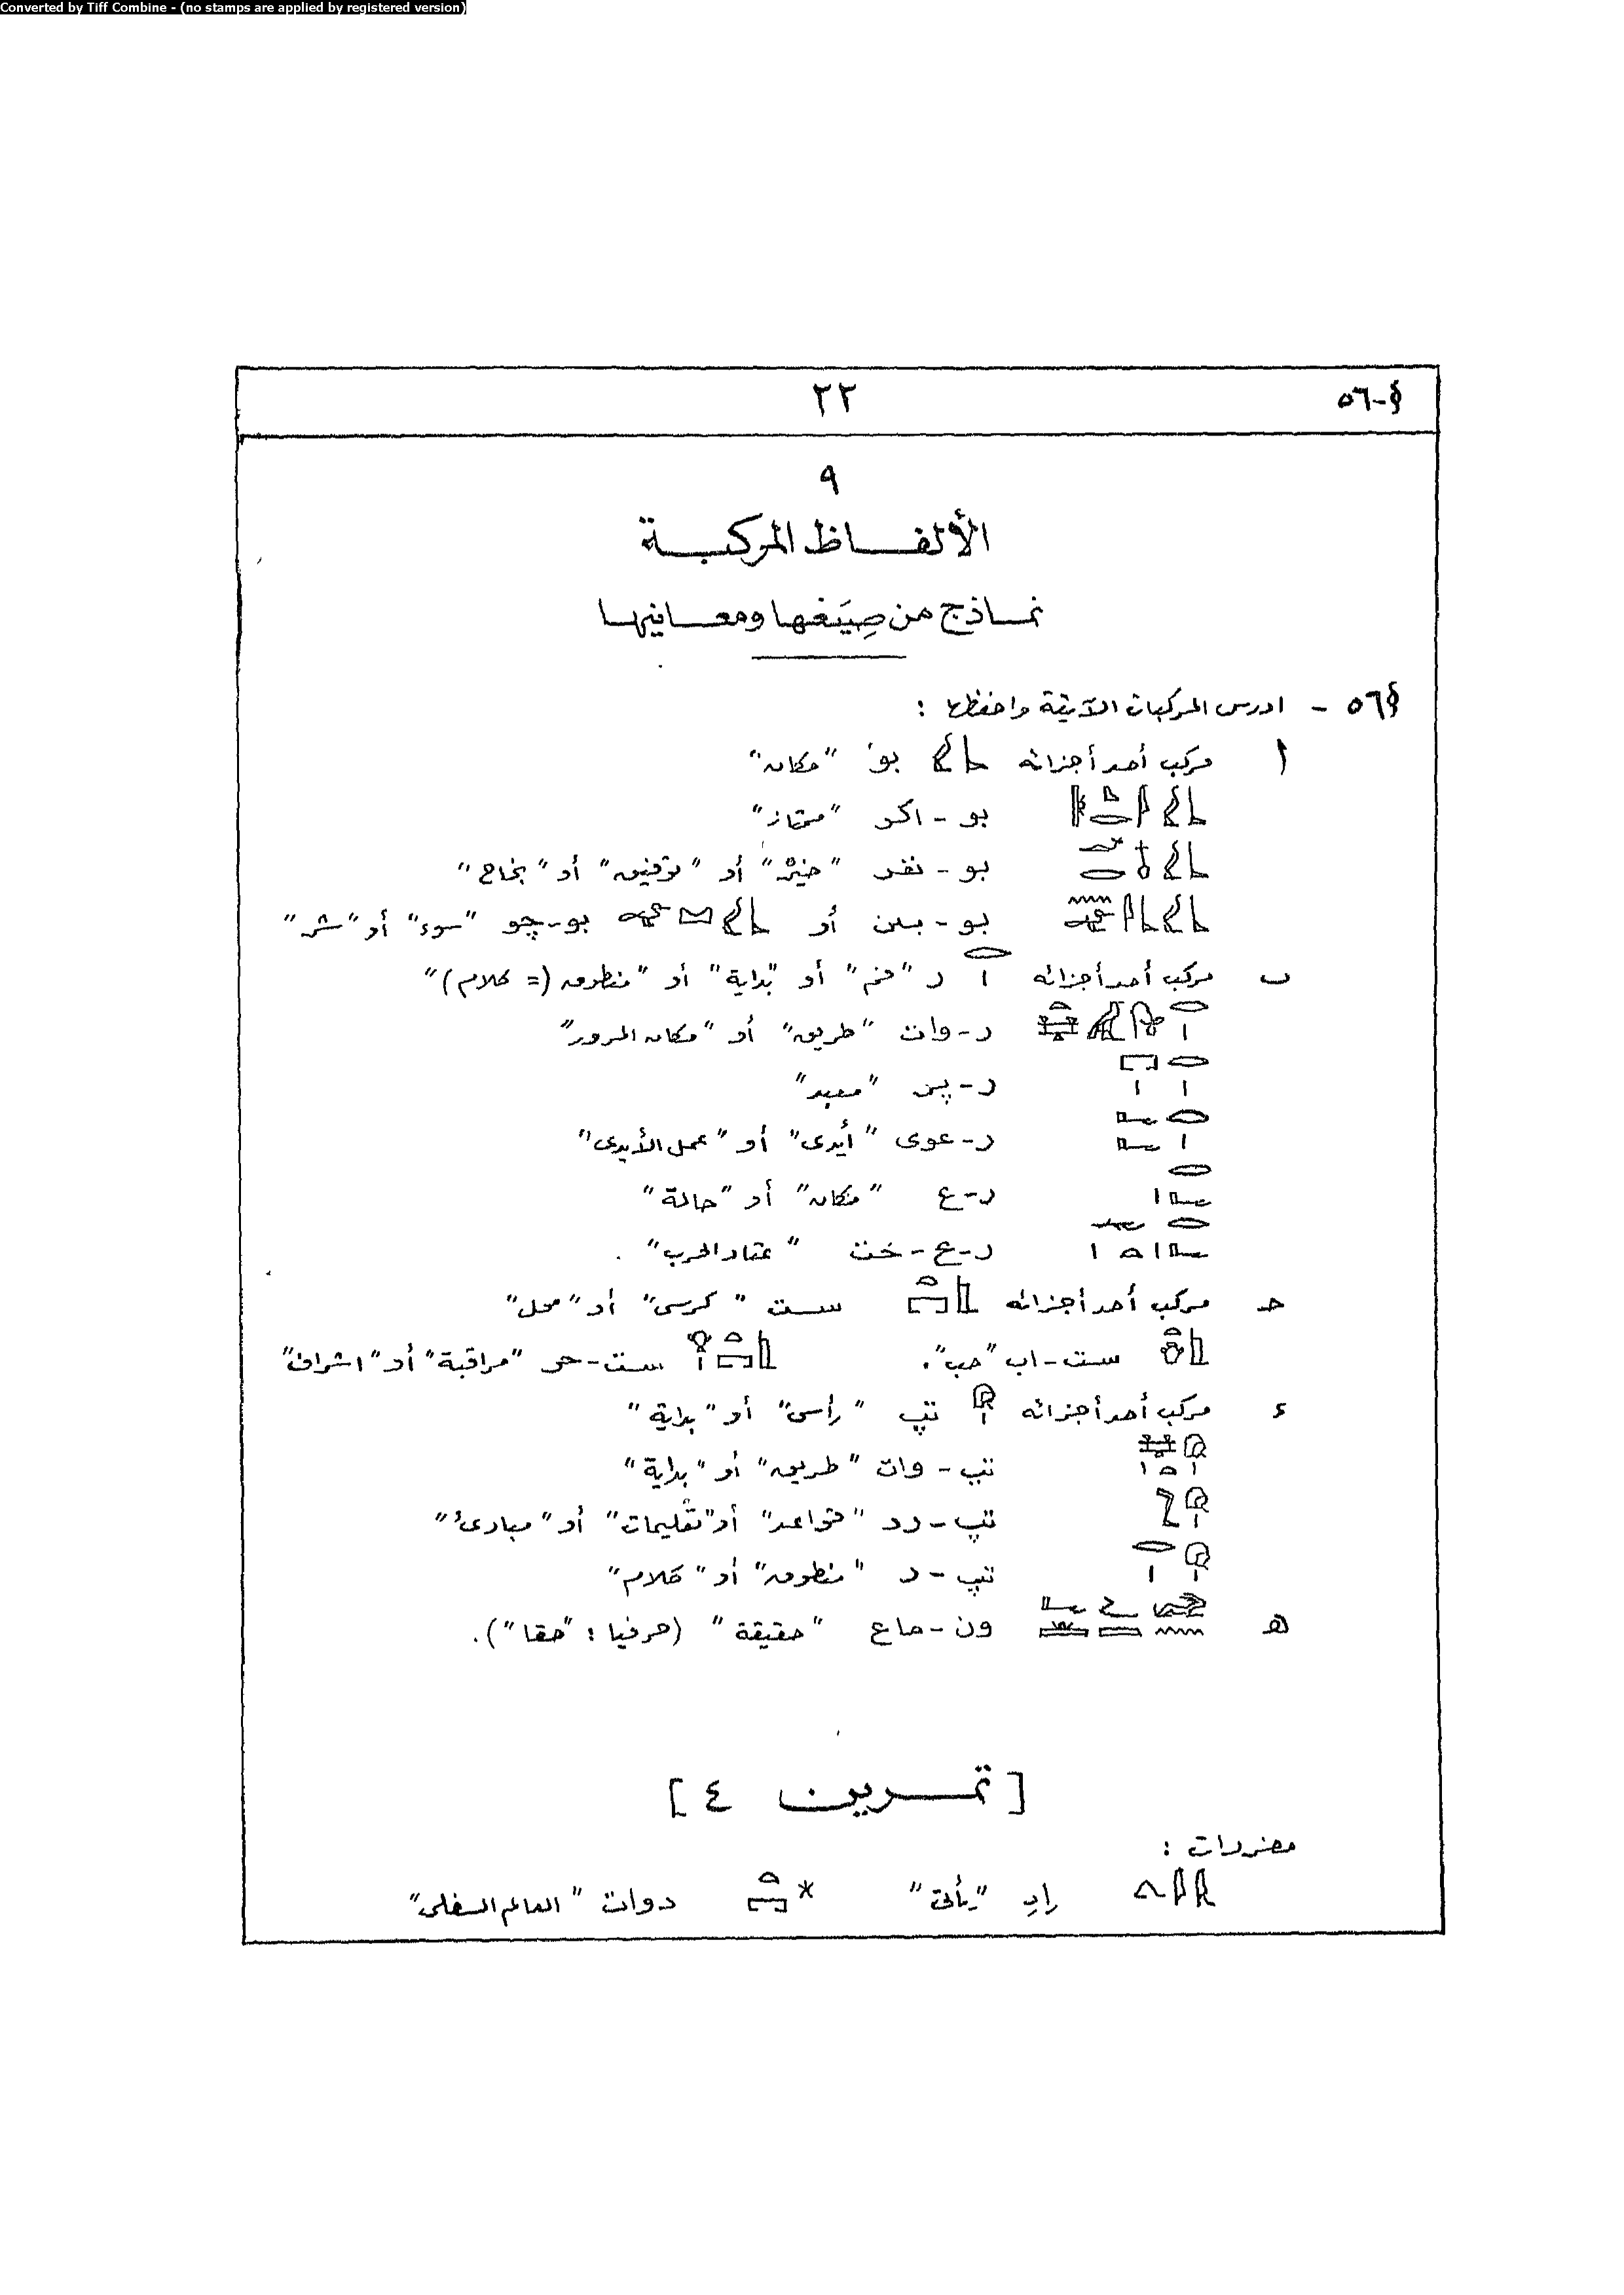 Converted by Tiff Combine - (no stamps are applied by registered version)
§-٥٦ ٢٢
٩
الألفاظ المركبة
نماذج من صِيَغها ومعانيها
§٥٦ - ادرس المركبات الآتية واحفظها :
ا مركب أحد أجزائه بو "مكان"
بو - اكر "ممتاز"
بو - نفر "خير" أو "توفيق" أو "نجاح"
بو - بين أو بو-چو "سوء" أو "شر"
ب مركب أحد أجزائه ر "فم" أو "بداية" أو "منطوق (= كلام)"
ر-وات "طريق" أو "مكان المرور"
ر-پر "معبد"
ر-عوى "أيدى" أو "عمل الأيدى"
ر-ع "مكان" أو "حالة"
ر-ع-خت "عتاد الحرب".
حـ مركب أحد أجزائه ست "كرسى" أو "محل"
ست-اب "حب". ست-حر "مراقبة" أو "اشراف"
ء مركب أحد أجزائه تپ "رأس" أو "بداية"
تپ-وات "طريق" أو "بداية"
تپ-رد "قواعد" أو "تعليمات" أو "مبادئ"
تپ-ر "منطوق" أو "كلام"
هـ ون-ماع "حقيقة" (حرفيا : "حقا").
[تمرين ٤]
مفردات :
"يأتى" دوات "العالم السفلى"